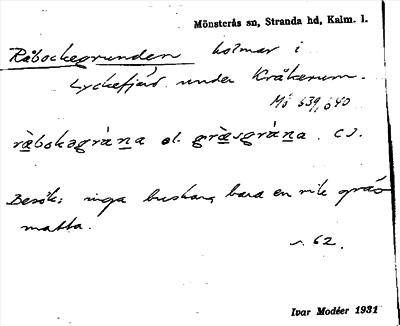 Mönsterås sn, Stranda hd, Kalm. l.
Råbockegrunden holmar i
Lyckefjärd under Kråkerum.
Mö 639, 640
ràbokəgrùna el. græ̀sgrùna. CJ.
Besök: inga buskar, bara en rik gräs
matta.
s. 62.
Ivar Modéer 1931